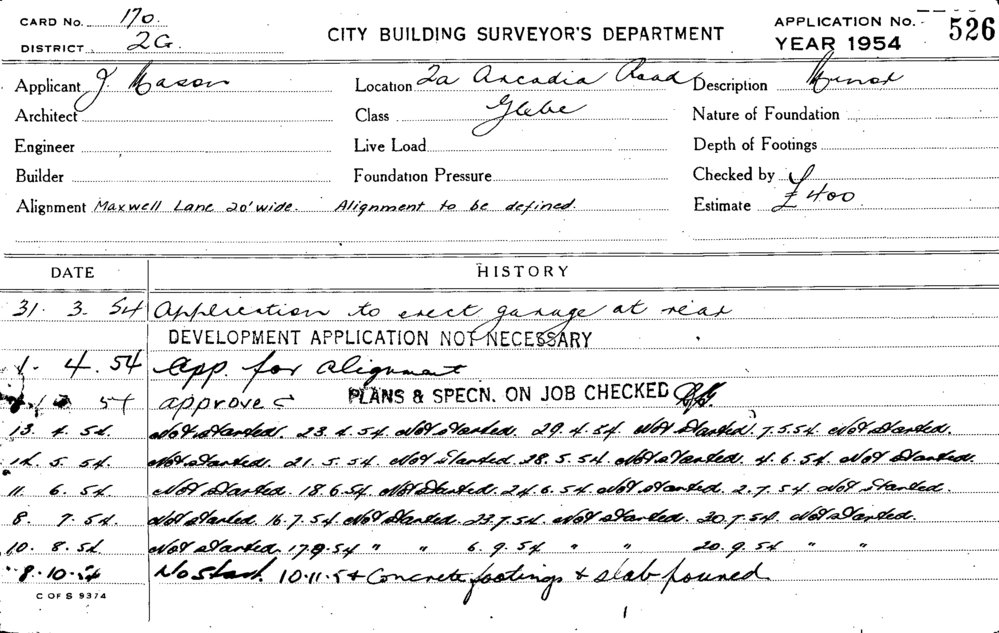 CARD NO. 170.
DISTRICT 2G.
CITY BUILDING SURVEYOR'S DEPARTMENT
APPLICATION NO. 526
YEAR 1954
Applicant J. Mason Location 2a Arcadia Road Description Minor
Architect Class Glebe Nature of Foundation
Engineer Live Load Depth of Footings
Builder Foundation Pressure Checked by
Alignment Maxwell Lane 20' wide. Alignment to be defined. Estimate £400
DATE HISTORY
31. 3. 54 Application to erect garage at rear
DEVELOPMENT APPLICATION NOT NECESSARY
1. 4. 54 App. for alignment
54 approved PLANS & SPECN. ON JOB CHECKED
13. 4. 54. Not Started. 23. 4. 54. Not Started. 29. 4. 54. Not Started. 7.5.54. Not Started.
14. 5. 54. Not Started. 21. 5. 54 Not Started. 28. 5. 54. Not Started. 4. 6. 54. Not Started.
11. 6. 54. Not Started. 18.6.54. Not Started. 24.6.54. Not Started. 2.7.54 Not Started.
8. 7. 54. Not Started. 16.7.54. Not Started. 23.7.54. Not Started. 30.7.54. Not Started.
10. 8. 54 Not Started. 54 " " 6. 9. 54 " " 20. 9. 54 " "
8. 10. 54 No start. 10.11.54 Concrete footings & slab poured
C OF S 9374